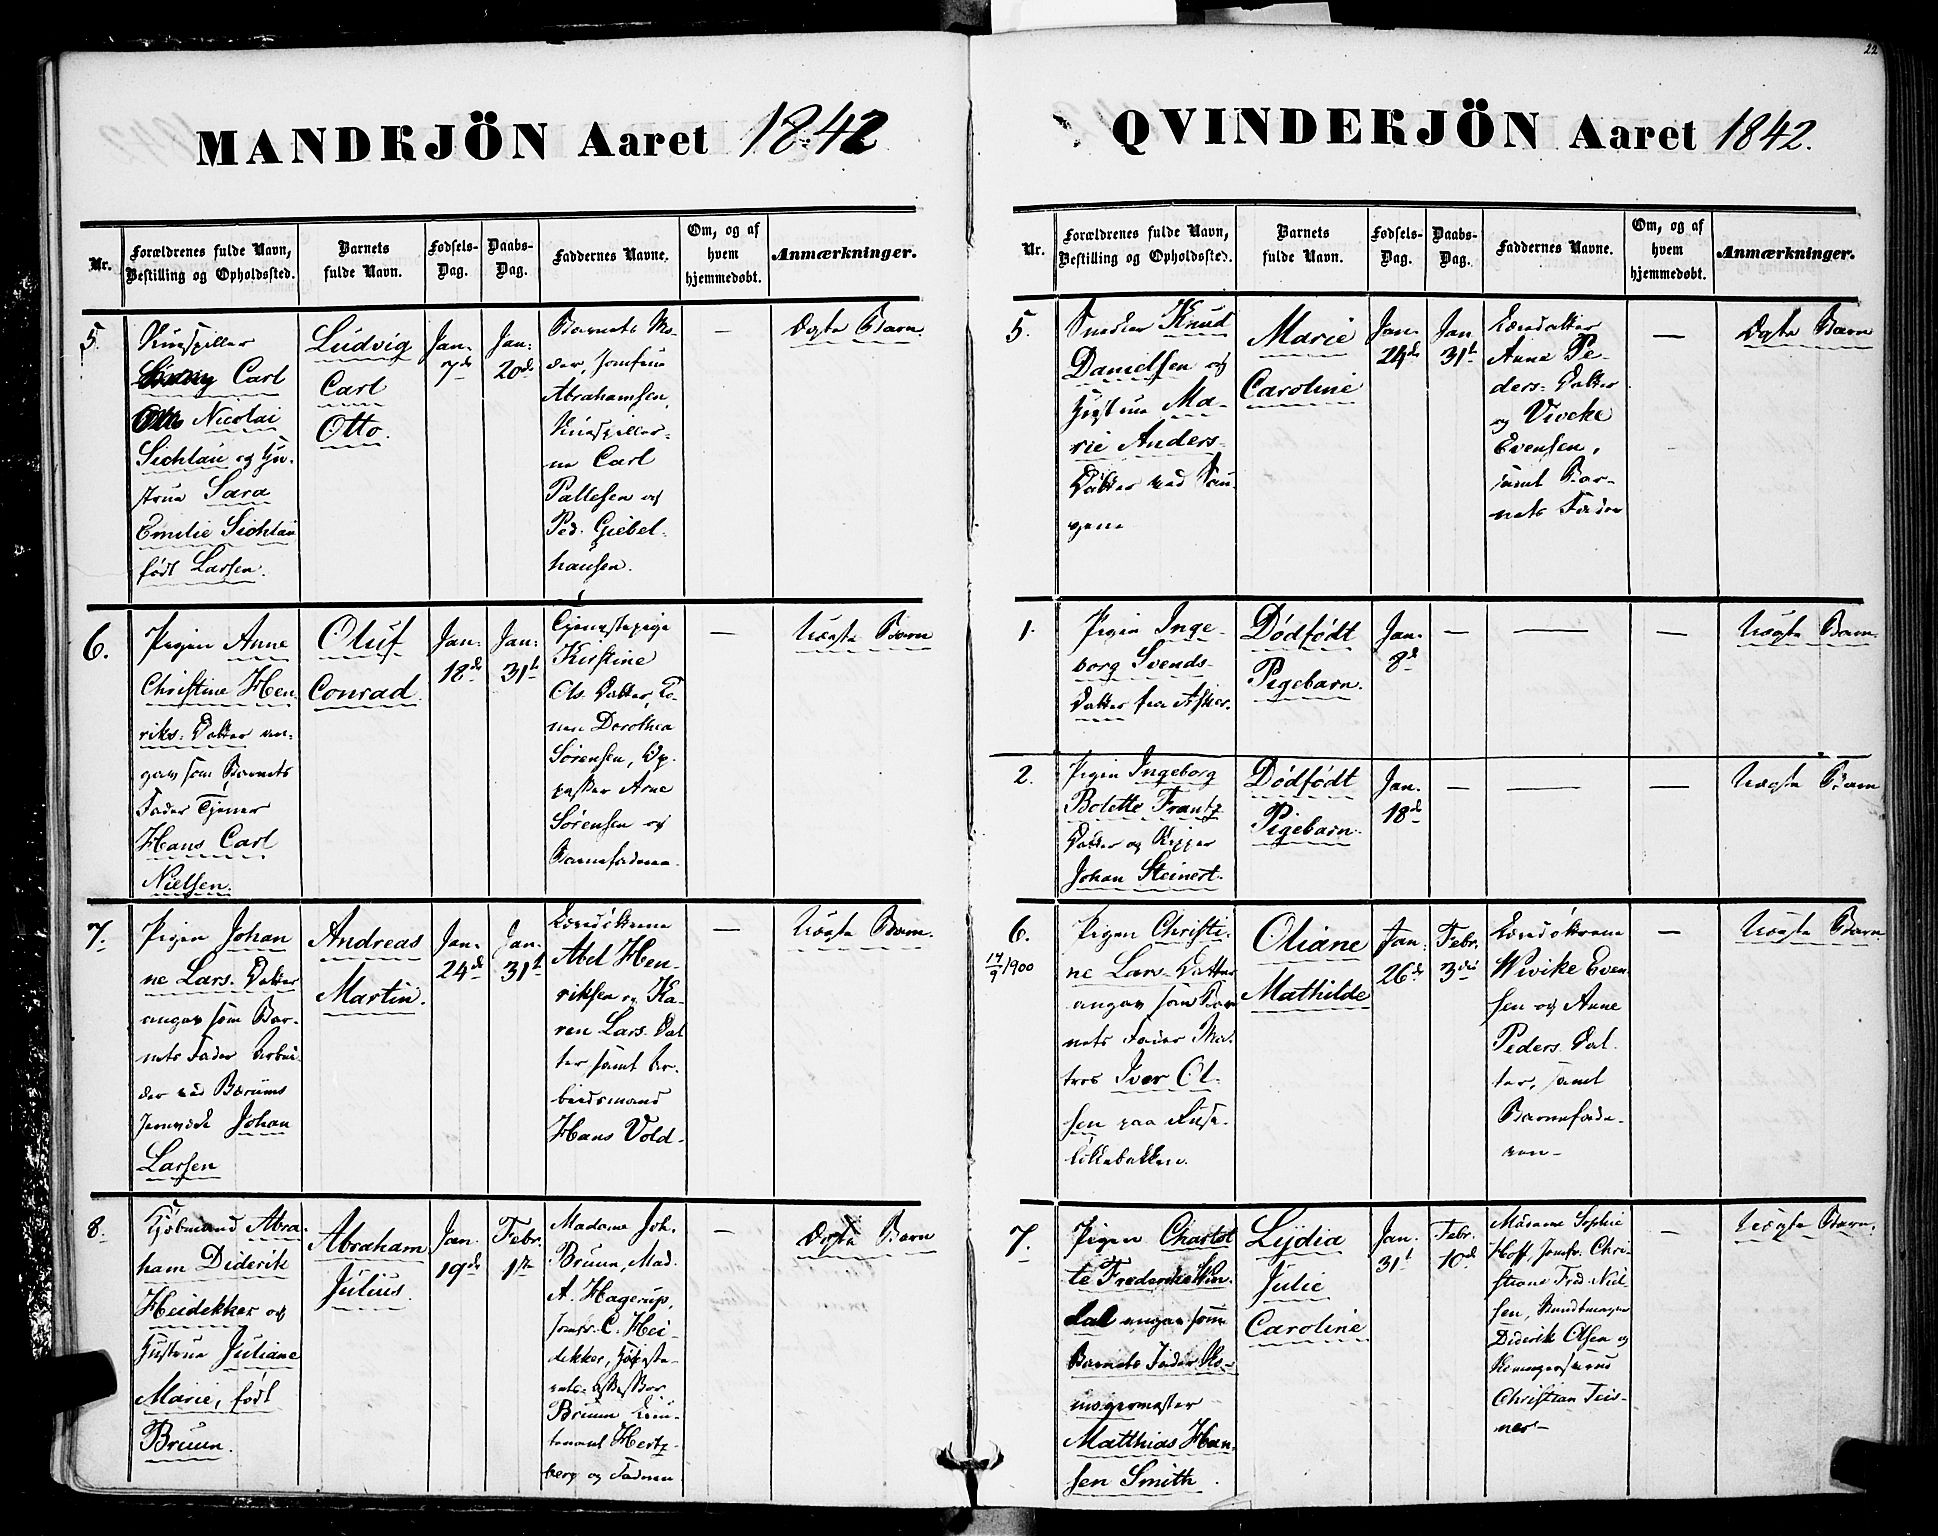 22
MANDKJÖN Aaret 1842
Nr.
Forældrenes fulde Navn,
Bestilling og Opholdssted.
Barnets
fulde Navn.
Fødsels-
Dag.
Daabs-
Dag.
Faddernes Navne.
Om, og af
hvem
hjemmedøbt.
Anmærkninger.
5.
Carl
Nicolai
Sichlau og Hu-
strue Sara
Emilie Sichlau
født Larsen.
Ludvig
Carl
Otto.
Jan.
7de
Jan:
20de
Barnets Mo-
der, Jomfrue
Abrahamsen,
ne Carl
Pallesen og
Ped. Giebel-
hausen.
—
Ægte Barn
6.
Pigen Anne
Christine Hen-
riks: Datter an-
gav som Barnets
Fader Tjener
Hans Carl
Nielsen.
Oluf
Conrad.
Jan:
18de
Jan:
31te
Tjenestepige
Kirstine
Ols. Datter,
Dorothea
Sørensen,
Arne
Sørensen og
Barnefaderen.
—
Uægte Barn
7.
Pigen Johan
ne Lars. Datter
angav som Bar-
nets Fader Arbei-
der ved Bærums
Jernværk Johan
Larsen
Andreas
Martin.
Jan.
24de
Jan.
31te
Abel Hen-
riksen og Ka-
ren Lars. Dat
ter samt Ar-
beidsmand
Hans Vold.
—
Uægte Barn.
8.
Kjøbmand Abra-
ham Diderik
Heidekker og
Hustrue Juliane
Marie, født
Bruun.
Abraham
Julius.
Jan.
19de
Febr.
1ste
Madame Joh.
Bruun, Mad.
A. Hagerup,
Jomfr. C. Hei-
dekker,
Bruun
Hertz-
berg og Faderen
—
Ægte Barn
QVINDERKJÖN Aaret 1842.
Nr.
Forældrenes fulde Navn,
Bestilling og Opholdssted.
Barnets
fulde Navn.
Fødsels-
Dag.
Daabs-
Dag.
Faddernes Navne.
Om, og af
hvem
hjemmedøbt.
Anmærkninger.
5.
Snedker Knud
Danielsen og
Hustrue Ma-
rie Anders-
Datter ved Sau-
gene
Marie
Caroline
Jan.
24de
Jan
31te
Anne Pe-
ders: Datter
og Viveke
Evensen,
samt Bar-
nets Fader
—
Ægte Barn
1.
Pigen Inge-
borg Svends-
Datter fra Asker.
Dødfødt
Pigebarn.
Jan.
8de
—
—
—
Uægte Barn.
2.
Pigen Ingeborg
Bolette Frantz
Datter og
Johan Steinert.
Dødfødt
Pigebarn.
Jan.
18de
—
—
—
Uægte Barn
6.
14/9 1900
Pigen Christi-
ne Lars- Datter
angav som Bar
nets Fader Ma-
tros Iver Ol-
sen paa Ruse-
løkbakken.
Oliane
Mathilde
Jan.
26de
Febr.
3die
Wivike Even
sen og Anne
Peders. Dat-
ter, samt
Barnefade-
ren-
—
Uægte Barn
7.
Pigen Charlot
te Frederikke Win
dal angav som
Barnets Fader Sko-
magermester
Matthias Han-
sen Smith.
Lydia
Julie
Caroline
Jan.
31te
Febr.
10de
Madame Sophie
Hoff, Jomfr. Chri-
stiane Fred. Niel-
sen, Bundtmager
Diderik Olsen og
Christian Teis-
ner-
—
Uægte Barn.